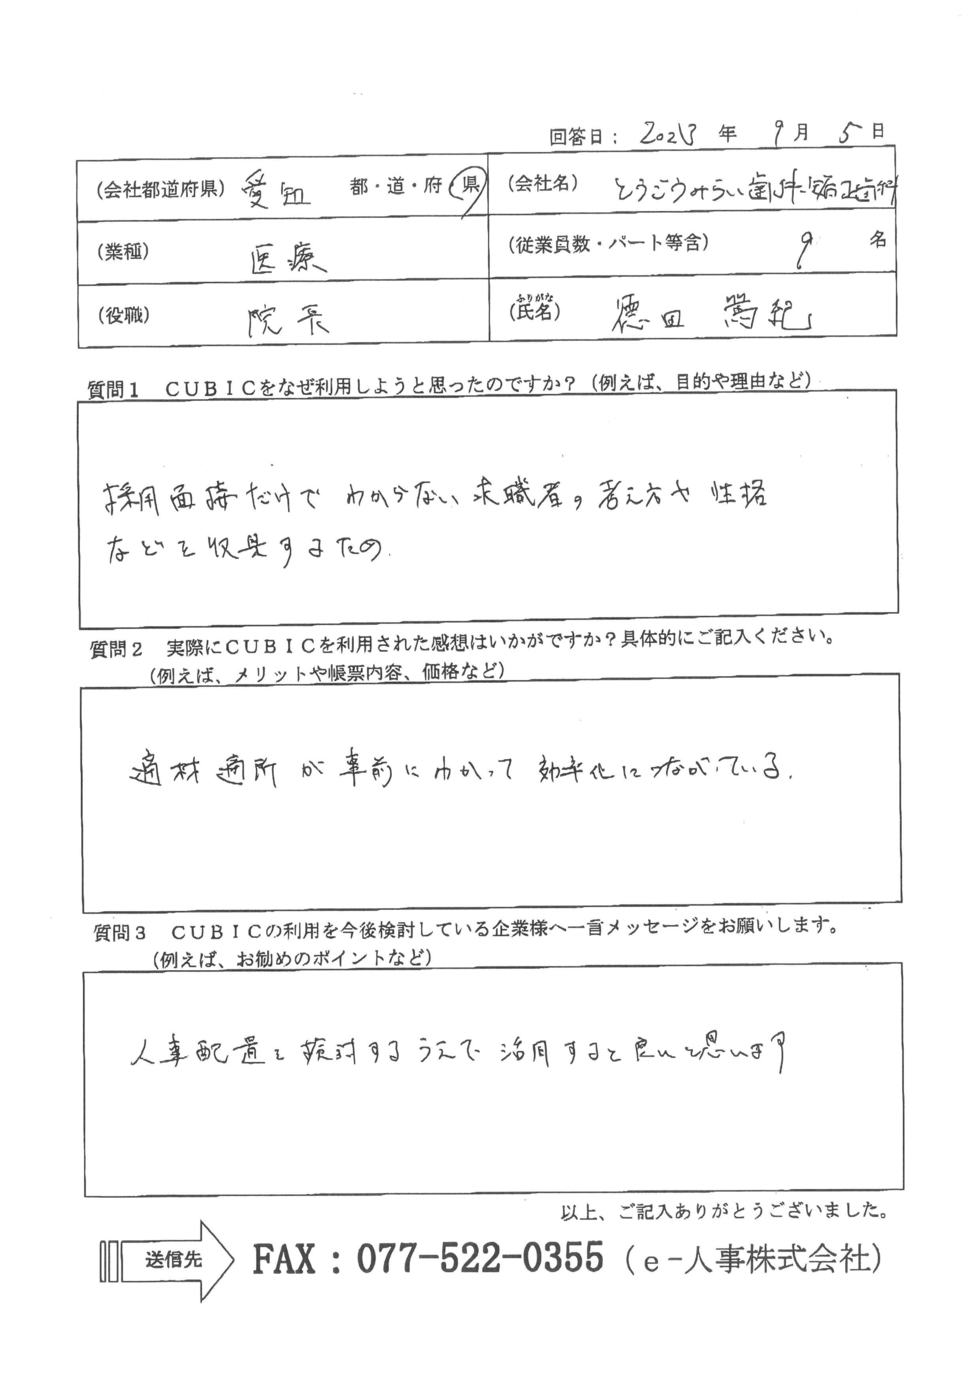 回答日： 2023 年 9 月 5 日
（会社都道府県） 愛知 都・道・府・県 （会社名） とうごうみらい歯科・矯正歯科
（業種） 医療 （従業員数・パート等含） 9 名
（役職） 院長 （氏名） ふりがな 徳田 篤紀
質問１ ＣＵＢＩＣをなぜ利用しようと思ったのですか？（例えば、目的や理由など）
採用面接だけで わからない 求職者の考え方や性格
などを するため
質問２ 実際にＣＵＢＩＣを利用された感想はいかがですか？具体的にご記入ください。
（例えば、メリットや帳票内容、価格など）
適材適所が事前にわかって効率化につながっている.
質問３ ＣＵＢＩＣの利用を今後検討している企業様へ一言メッセージをお願いします。
（例えば、お勧めのポイントなど）
人事配置を検討するうえで活用すると良いと思います
以上、ご記入ありがとうございました。
送信先 FAX：077-522-0355（ｅ-人事株式会社）